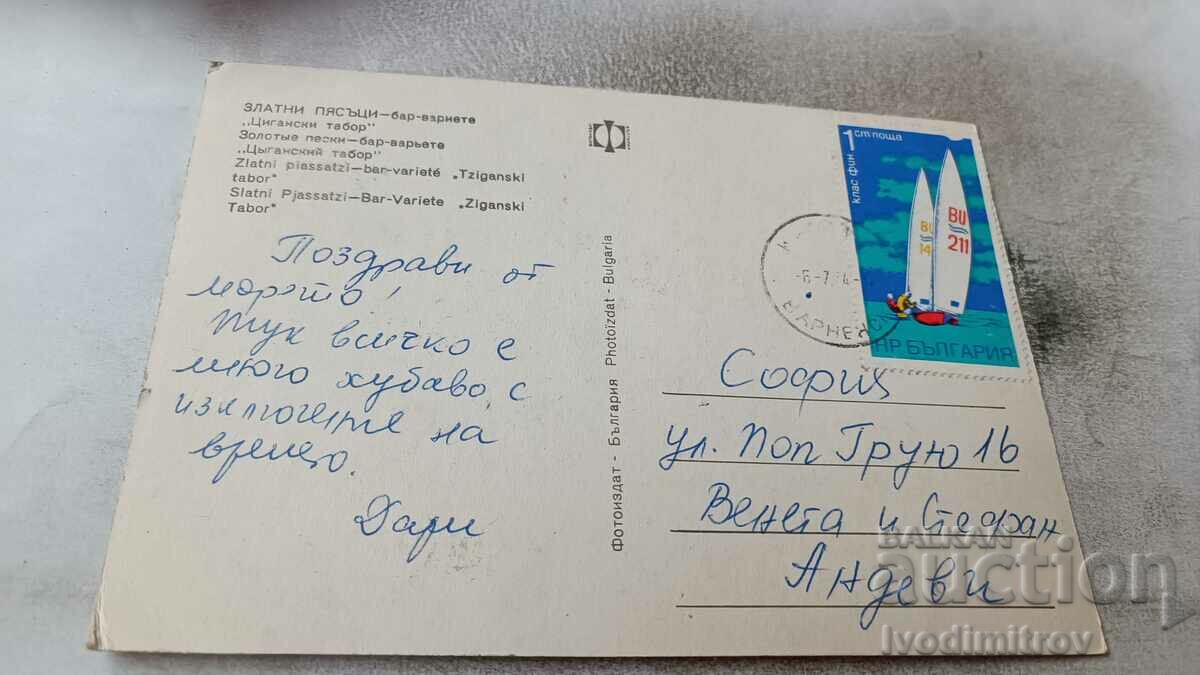 ЗЛАТНИ ПЯСЪЦИ—бар-вариете
„Цигански табор"
Золотые пески—бар-варьете
„Цыганский табор"
Zlatni piassatzi—bar-varieté „Tziganski
tabor"
Slatni Pjassatzi—Bar-Variete „Ziganski
Tabor"
Поздрави от
морето!
Тук всичко е
много хубаво, с
изключение на
времето.
Дари
Фотоиздат - България Photoizdat - Bulgaria
1 ст поща
клас фин
BU
14
BU
211
НР БЪЛГАРИЯ
София
ул. Поп Грую 16
Венета и Стефан
Андеви
BALKAN
auction
Ivodimitrov